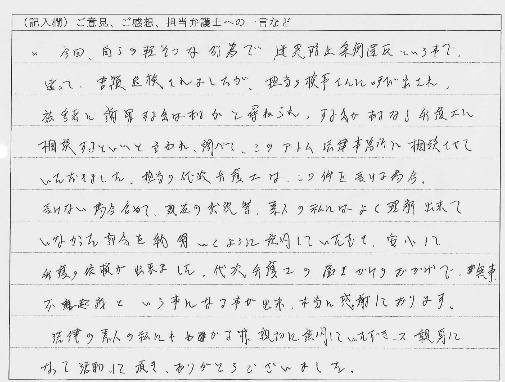 (記入欄)ご意見、ご感想、担当弁護士への一言など
今回、自らの軽率な行為で 迷惑防止条例違反という事で、
至って、書類送検されましたが、担当の検事さんに呼び出され、
被害者に謝罪する気はあるかと尋ねられ、する気があるなら弁護士に
相談するといいと言われ、調べて、このアトム法律事務所に相談させて
いただきました。担当の代次弁護士は、この件を受ける場合、
受けない場合含めて、現在の状況等、素人の私にはよく理解出来て
いなかった部分を納得いくように説明していただき、安心して
弁護の依頼が出来ました。代次弁護士の働きかけのおかげで、
不起訴という事になる事が出来、本当に感謝しております。
法律の素人の私にもわかる様、親切に説明していただき、又親身に
なって活動して頂き、ありがとうございました。